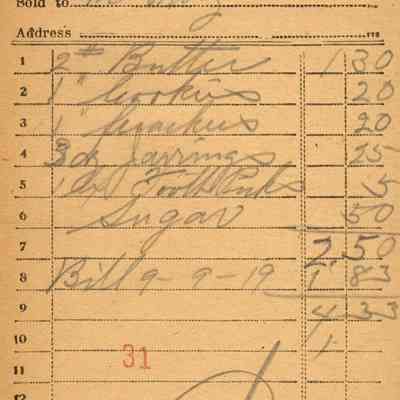 Sold to
Address
1 2# Butter 1 30
2 1 " Cookies 20
3 1 " Crackers 20
4 3 dz Jarrings 25
5 1 Bx Tooth Picks 5
6 Sugar 50
7 2.50
8 Bill 9-9-19 1 83
9 4 33
10 1
11 31
12